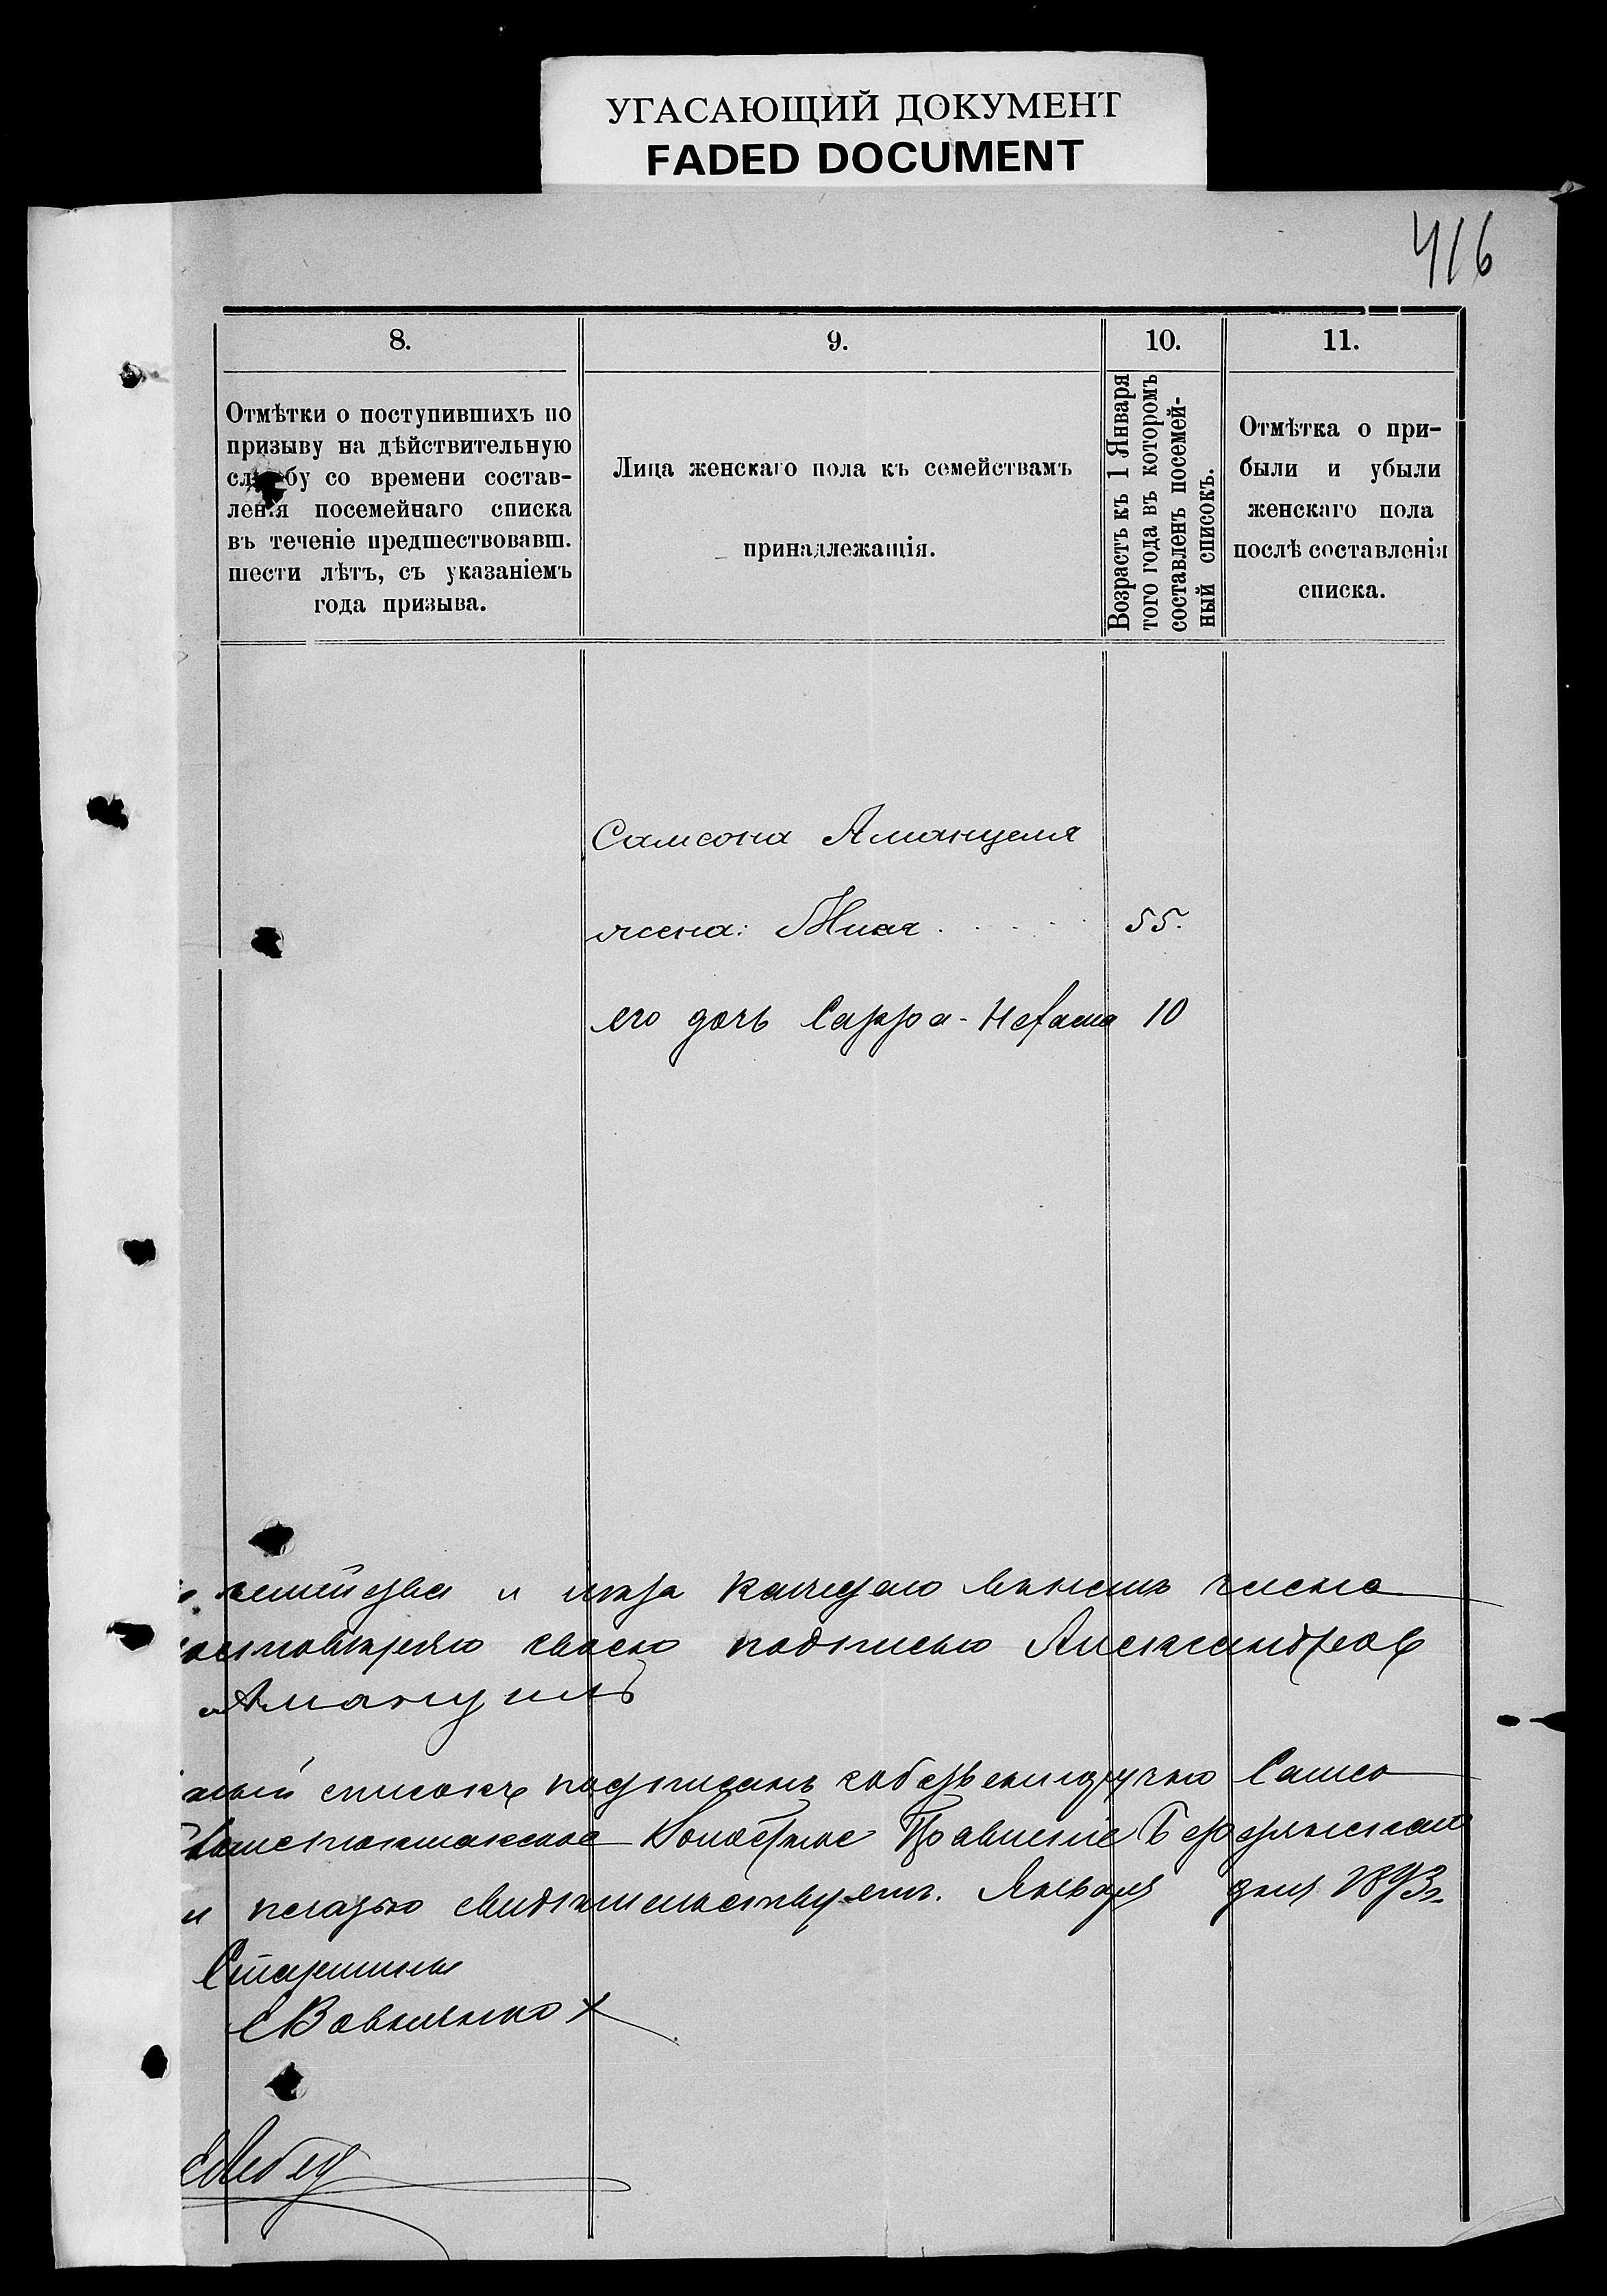 УГАСАЮЩИЙ ДОКУМЕНТ
FADED DOCUMENT
416
8.
9.
10.
11.
Отмѣтки о поступившихъ по
призыву на дѣйствительную
службу со времени состав-
ленія посемейнаго списка
въ теченіе предшествовавш.
шести лѣтъ, съ указаніемъ
года призыва.
Лица женскаго пола къ семействамъ
принадлежащія.
Возрастъ къ 1 Января
того года въ которомъ
составленъ посемей-
ный списокъ.
Отмѣтка о при-
были и убыли
женскаго пола
послѣ составленія
списка.
Самсона Амануеля
жена: 55.
его дочь Сарра- 10
и каждаго
своею подписью Александров
Амануиль
списокъ подписанъ собственноручно Самсо
Волостное Правленіе Бердянскаго
и печатью свидѣтельствуетъ. Января дня 1893 г.
Старшина